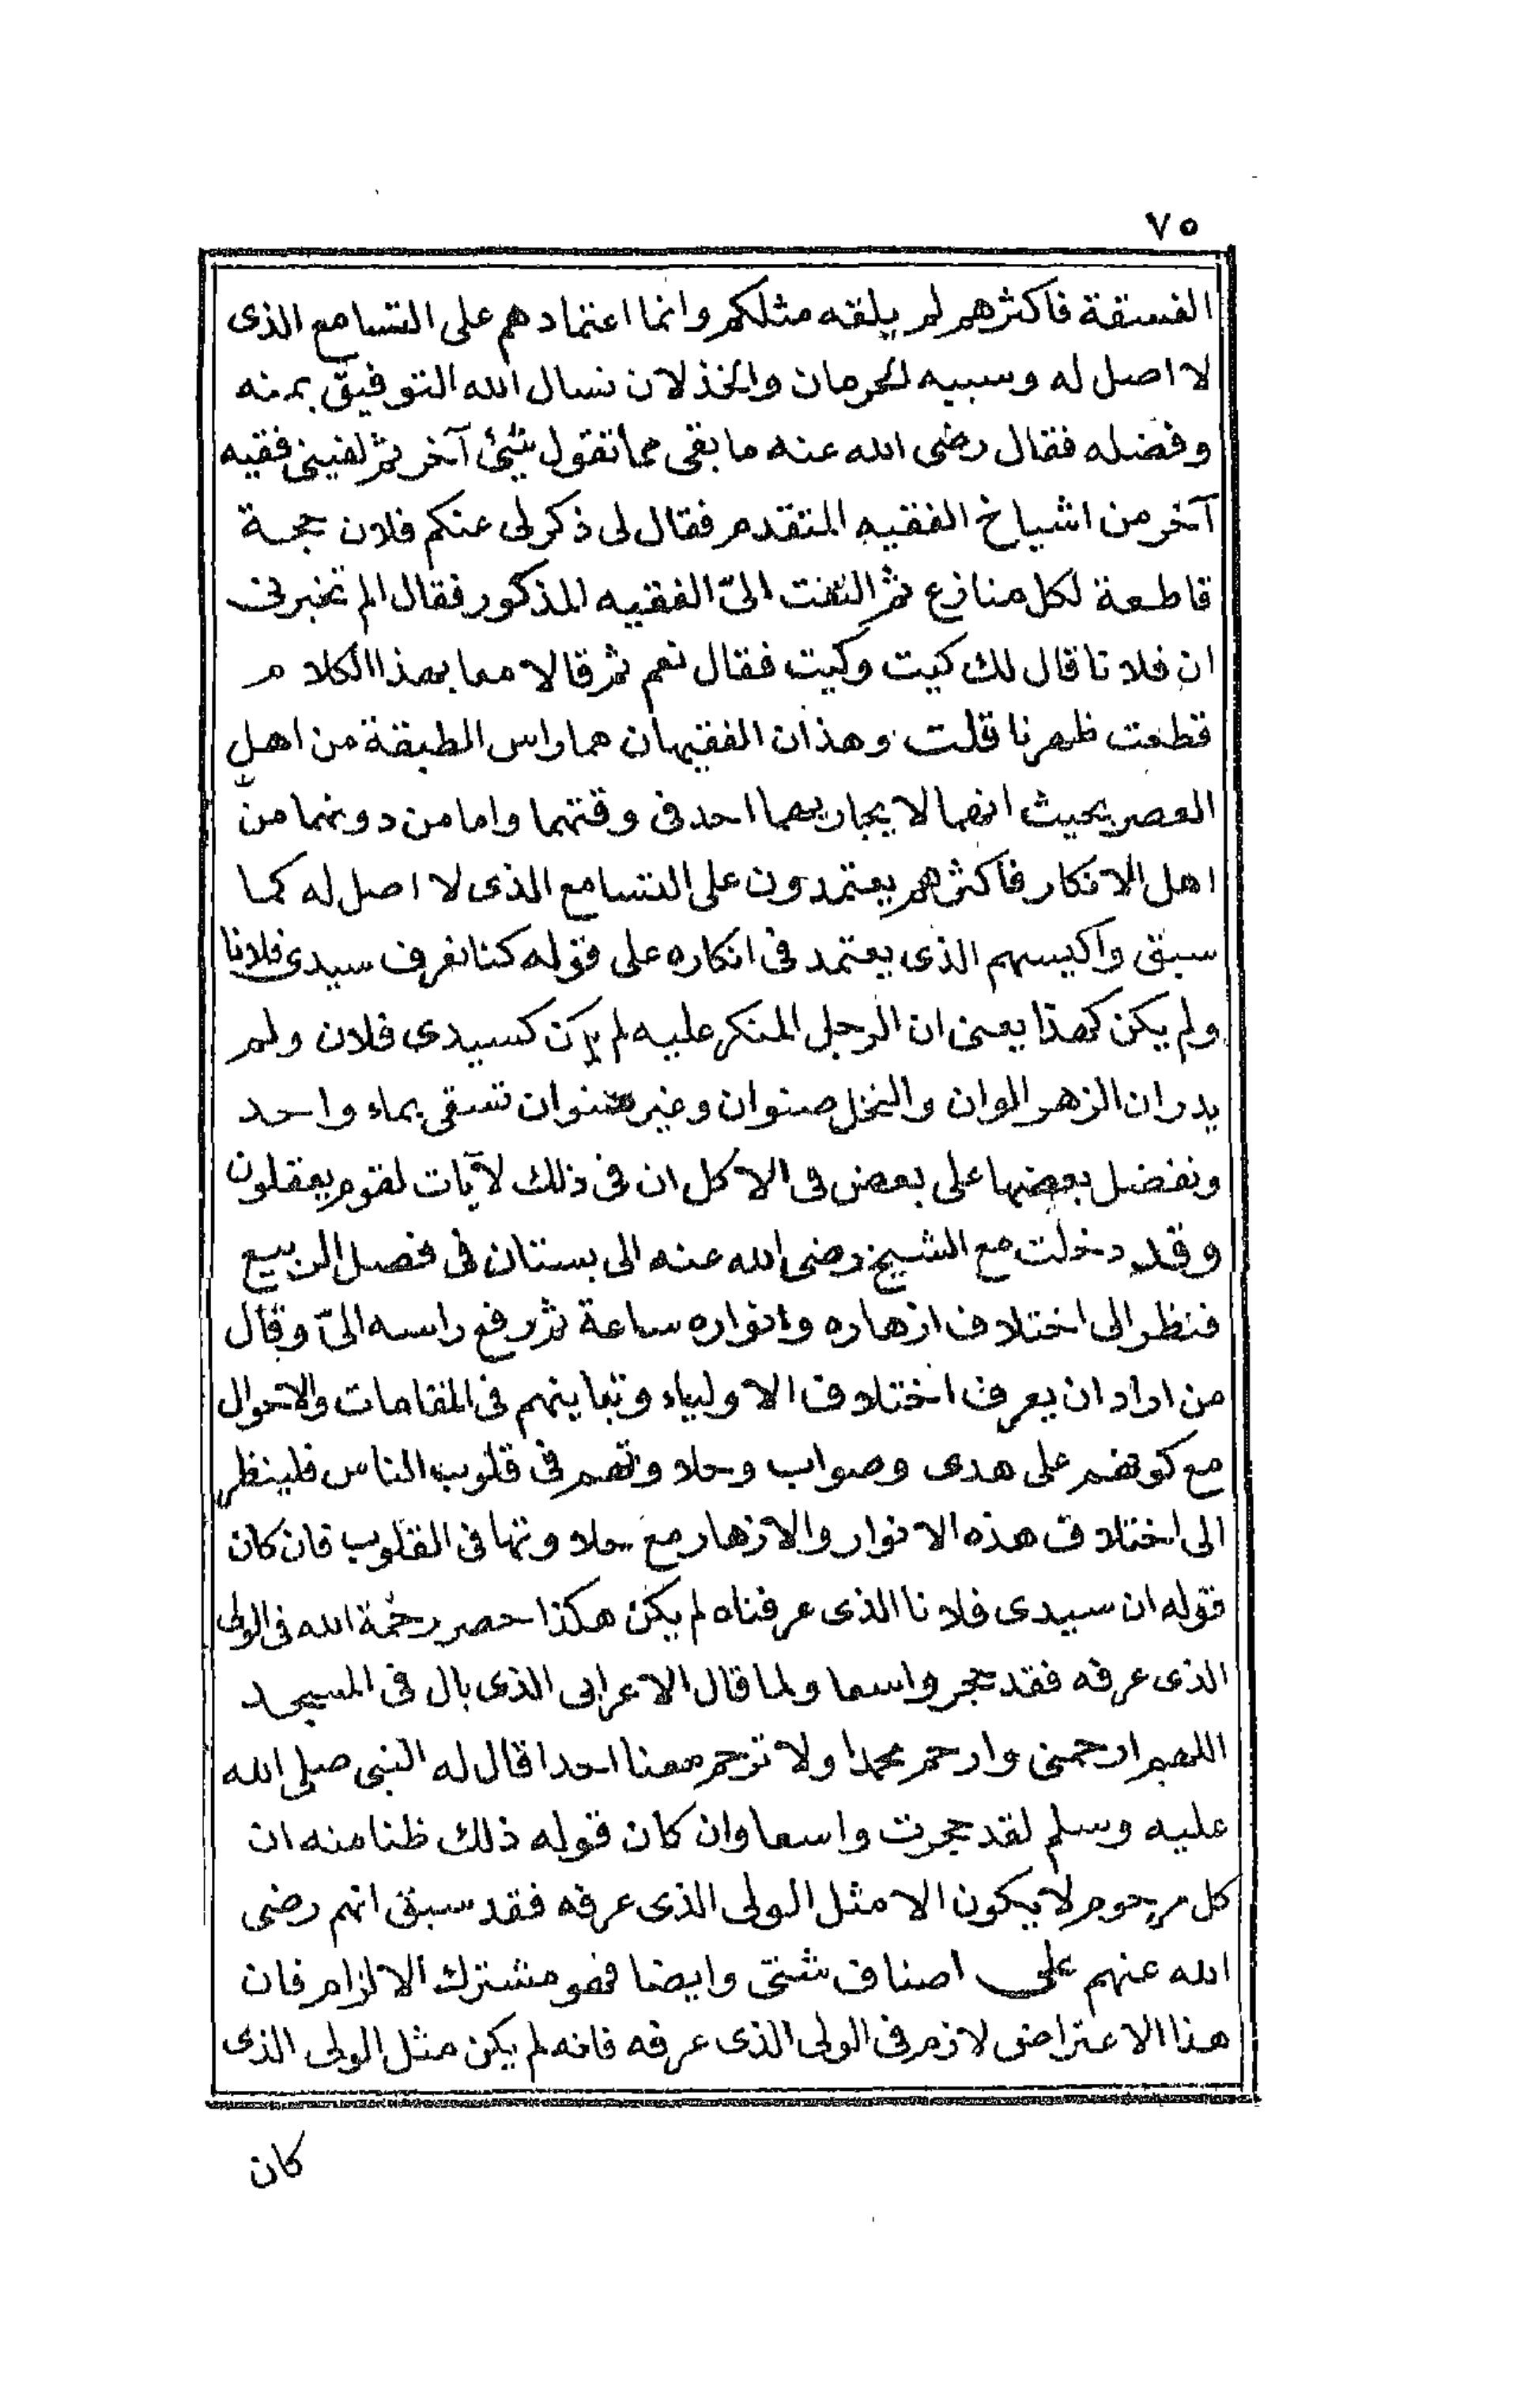 ٧٥
الفسقة فاكثرهم لم يلقه مثلكم وانما اعتمادهم على التسامع الذى
لا اصل له وسببه الحرمان والخذلان نسال الله التوفيق بمنه
وفضله فقال رضى الله عنه ما بقى مما تقول شيئ آخر ثم لقينى فقيه
آخر من اشياخ الفقيه المتقدم فقال لى ذكر لى عنكم فلان حجة
قاطعة لكل منازع ثم التفت الىّ الفقيه المذكور فقال الم تخبرنى
ان فلانا قال لك كيت وكيت فقال نعم ثم قالا معا بهذا الكلام
قطعت ظهرنا قلت وهذان الفقيهان هما راس الطبقة من اهل
العصر بحيث انهما لا يجاريهما احد فى وقتهما واما من دونهما من
اهل الانكار فاكثرهم يعتمدون على التسامع الذى لا اصل له كما
سبق واكيسهم الذى يعتمد فى انكاره على قوله كنا نعرف سيدى فلانا
ولم يكن كهذا يعنى ان الرجل المنكر عليه لم يكن كسيدى فلان ولم
يدر ان الزهر الوان والنخل صنوان وغير صنوان تسقى بماء واحد
ونفضل بعضها على بعض فى الاكل ان فى ذلك لآيات لقوم يعقلون
وقد دخلت مع الشيخ رضى الله عنه الى بستان فى فصل الربيع
فنظر الى اختلاف ازهاره وانواره ساعة ثم رفع راسه الىّ وقال
من اراد ان يعرف اختلاف الاولياء وتباينهم فى المقامات والاحوال
مع كونهم على هدى وصواب وحلاوتهم فى قلوب الناس فلينظر
الى اختلاف هذه الانوار والازهار مع حلاوتها فى القلوب فان كان
قوله ان سيدى فلانا الذى عرفناه لم يكن هكذا حصر رحمة الله فى الولى
الذى عرفه فقد حجر واسعا ولما قال الاعرابى الذى بال فى المسجد
اللهم ارحمنى وارحم محمدا ولا ترحم معنا احدا قال له النبى صلى الله
عليه وسلم لقد حجرت واسعا وان كان قوله ذلك ظنا منه ان
كل مرحوم لا يكون الا مثل الولى الذى عرفه فقد سبق انهم رضى
الله عنهم على اصناف شتى وايضا فهو مشترك الالزام فان
هذا الاعتراض لازم فى الولى الذى عرفه فانه لم يكن مثل الولى الذى
كان